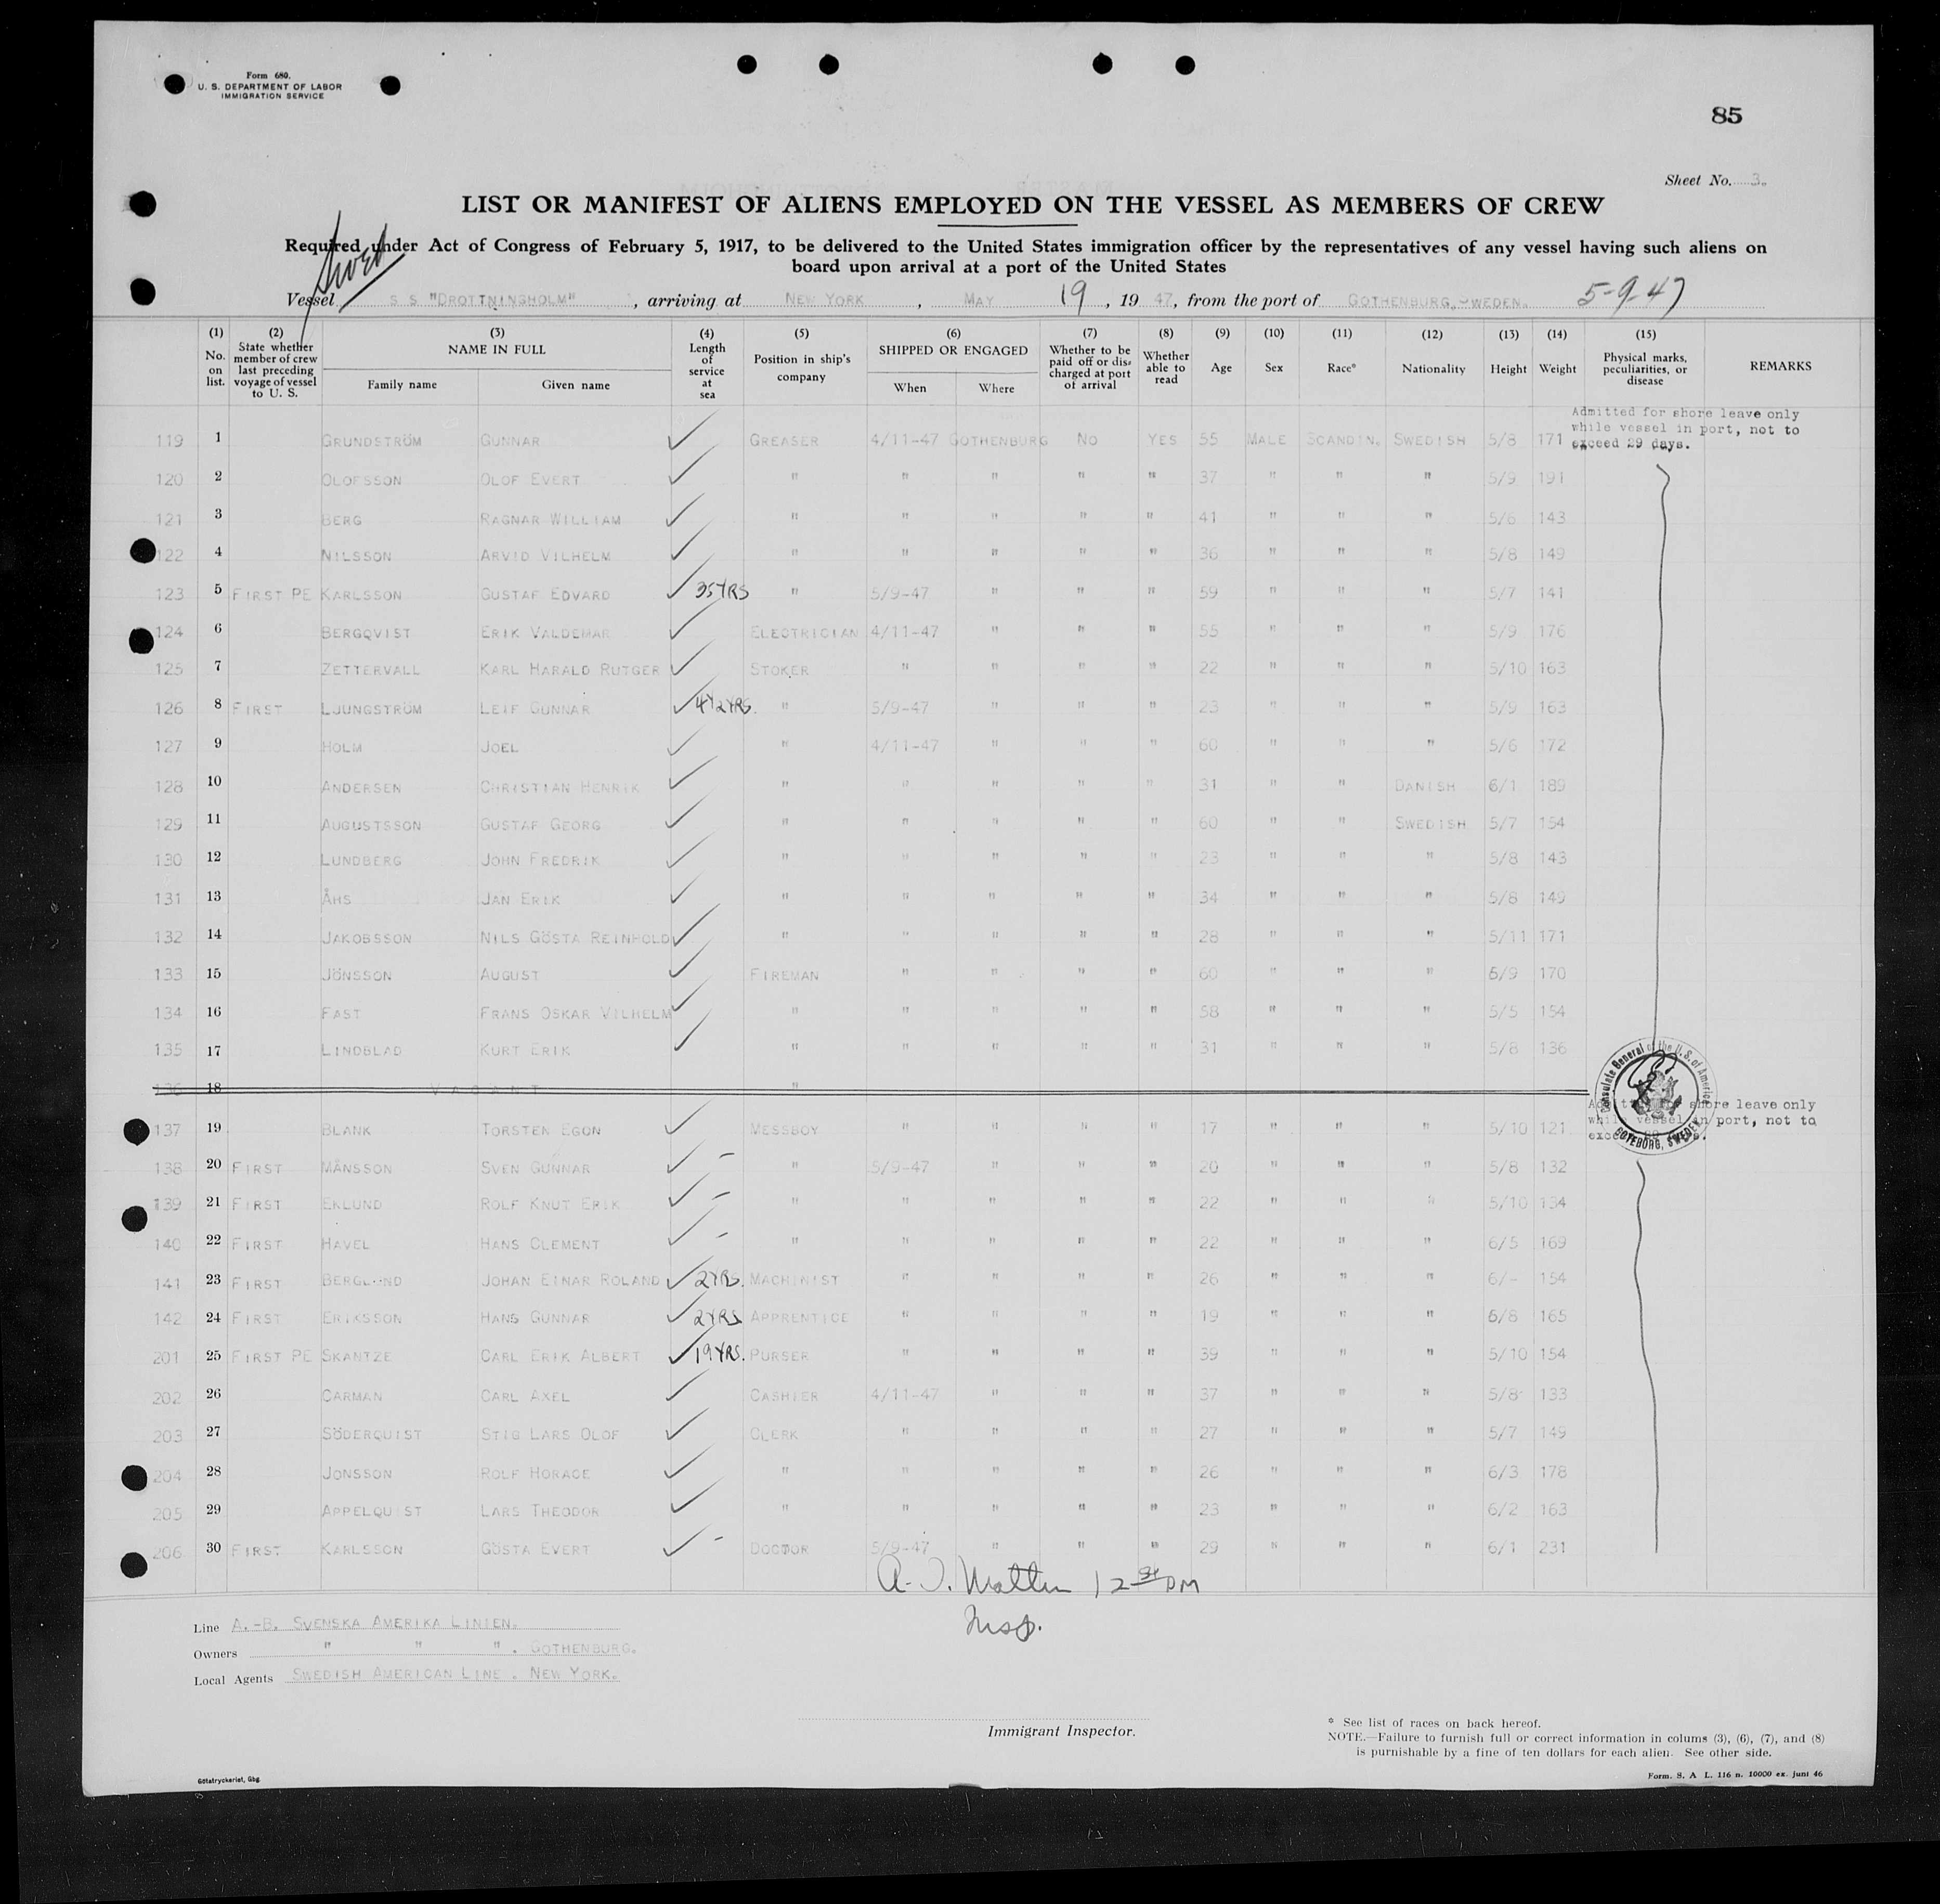 Form 680.
U. S. DEPARTMENT OF LABOR
IMMIGRATION SERVICE
85
Sheet No. 3.
LIST OR MANIFEST OF ALIENS EMPLOYED ON THE VESSEL AS MEMBERS OF CREW
Required under Act of Congress of February 5, 1917, to be delivered to the United States immigration officer by the representatives of any vessel having such aliens on
board upon arrival at a port of the United States
Swed
Vessel S S "DROTTNINGHOLM", arriving at NEW YORK, MAY 19, 19 47, from the port of GOTHENBURG, SWEDEN. 5-9-47
(1) No. on list. (2) State whether member of crew last preceding voyage of vessel to U. S. (3) NAME IN FULL Family name Given name (4) Length of service at sea (5) Position in ship's company (6) SHIPPED OR ENGAGED When Where (7) Whether to be paid off or discharged at port of arrival (8) Whether able to read (9) Age (10) Sex (11) Race* (12) Nationality (13) Height (14) Weight (15) Physical marks, peculiarities, or disease REMARKS
Admitted for shore leave only
while vessel in port, not to
exceed 29 days.
119 1 GRUNDSTRÖM GUNNAR GREASER 4/11-47 GOTHENBURG NO YES 55 MALE SCANDIN. SWEDISH 5/8 171
120 2 OLOFSSON OLOF EVERT " " " " " 37 " " " 5/9 191
121 3 BERG RAGNAR WILLIAM " " " " " 41 " " " 5/6 143
122 4 NILSSON ARVID VILHELM " " " " " 36 " " " 5/8 149
123 5 FIRST PE KARLSSON GUSTAF EDVARD 35 YRS " 5/9-47 " " " 59 " " " 5/7 141
124 6 BERGQVIST ERIK VALDEMAR ELECTRICIAN 4/11-47 " " " 55 " " " 5/9 176
125 7 ZETTERVALL KARL HARALD RUTGER STOKER " " " " 22 " " " 5/10 163
126 8 FIRST LJUNGSTRÖM LEIF GUNNAR 4 1/2 YRS. " 5/9-47 " " " 23 " " " 5/9 163
127 9 HOLM JOEL " 4/11-47 " " " 60 " " " 5/6 172
128 10 ANDERSEN CHRISTIAN HENRIK " " " " " 31 " " DANISH 6/1 189
129 11 AUGUSTSSON GUSTAF GEORG " " " " " 60 " " SWEDISH 5/7 154
130 12 LUNDBERG JOHN FREDRIK " " " " " 23 " " " 5/8 143
131 13 ÅHS JAN ERIK " " " " " 34 " " " 5/8 149
132 14 JAKOBSSON NILS GÖSTA REINHOLD " " " " " 28 " " " 5/11 171
133 15 JÖNSSON AUGUST FIREMAN " " " " 60 " " " 5/9 170
134 16 FAST FRANS OSKAR VILHELM " " " " " 58 " " " 5/5 154
135 17 LINDBLAD KURT ERIK " " " " " 31 " " " 5/8 136
136 18 VACANT "
Consulate General of the U.S. of America
GÖTEBORG, SWEDEN
Admitted for shore leave only
while vessel in port, not to
137 19 BLANK TORSTEN EGON MESSBOY " " " " 17 " " " 5/10 121
138 20 FIRST MÅNSSON SVEN GUNNAR – " 5/9-47 " " " 20 " " " 5/8 132
139 21 FIRST EKLUND ROLF KNUT ERIK – " " " " " 22 " " " 5/10 134
140 22 FIRST HAVEL HANS CLEMENT – " " " " " 22 " " " 6/5 169
141 23 FIRST BERGLUND JOHAN EINAR ROLAND 2 YRS. MACHINIST " " " " 26 " " " 6/- 154
142 24 FIRST ERIKSSON HANS GUNNAR 2 YRS APPRENTICE " " " " 19 " " " 6/8 165
201 25 FIRST PE SKANTZE CARL ERIK ALBERT 19 YRS. PURSER " " " " 39 " " " 5/10 154
202 26 CARMAN CARL AXEL CASHIER 4/11-47 " " " 37 " " " 5/8 133
203 27 SÖDERQUIST STIG LARS OLOF CLERK " " " " 27 " " " 5/7 149
204 28 JONSSON ROLF HORACE " " " " " 26 " " " 6/3 178
205 29 APPELQUIST LARS THEODOR " " " " " 23 " " " 6/2 163
206 30 FIRST KARLSSON GÖSTA EVERT – DOCTOR 5/9-47 " " " 29 " " " 6/1 231
A. J. 12 PM
Insp.
Line A.-B. SVENSKA AMERIKA LINIEN.
Owners " " ". GOTHENBURG.
Local Agents SWEDISH AMERICAN LINE. NEW YORK.
Immigrant Inspector.
* See list of races on back hereof.
NOTE.—Failure to furnish full or correct information in colums (3), (6), (7), and (8)
is purnishable by a fine of ten dollars for each alien. See other side.
Götatryckeriet, Gbg.
Form. S. A L. 116 n. 10000 ex. juni 46